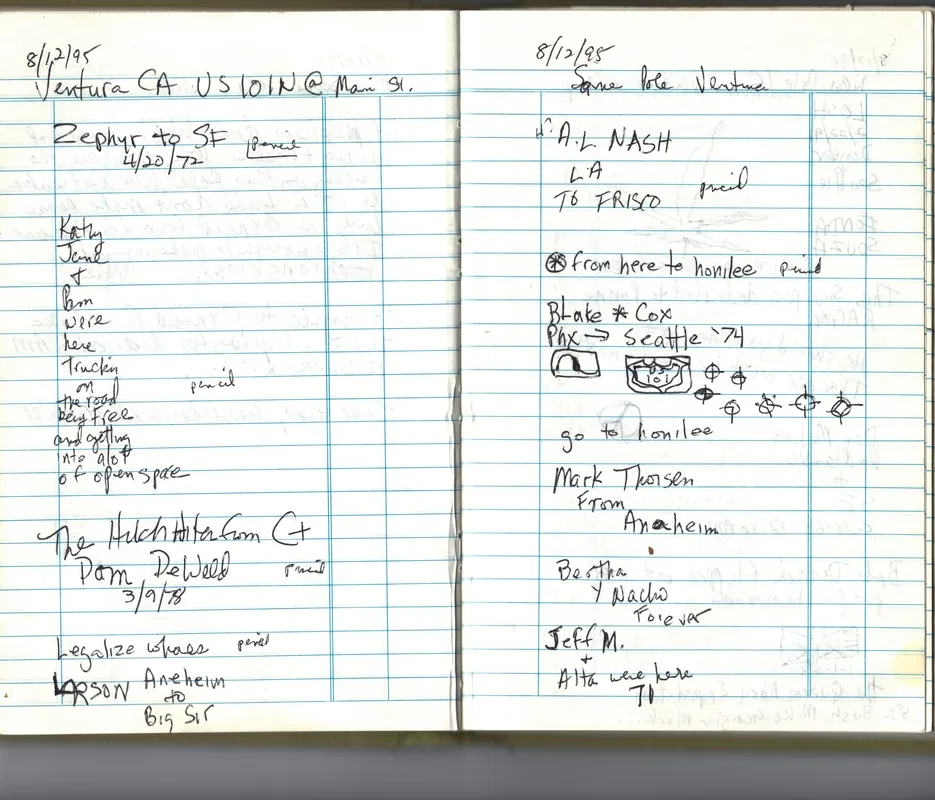 8/12/95
Ventura CA US 101N @ Main St.
Zephyr to SF
4/20/72 pencil
Kathy
Jane
+
Pam
were
here
truckin
on
the road pencil
being free
and getting
into alot
of open space
The HitchHiker from CT
Pam DeWeld pencil
3/9/78
Legalize whores pencil
LARSON Aneheim
to
Big Sir
8/12/95
Same Pole Ventura
A.L. NASH
LA
TO FRISCO pencil
from here to honilee pencil
BLake * Cox
Phx → Seattle '74
go to honilee
Mark Thorsen
From
Anaheim
Bertha
Y Nacho
Forever
Jeff M.
+
Alta were here
71